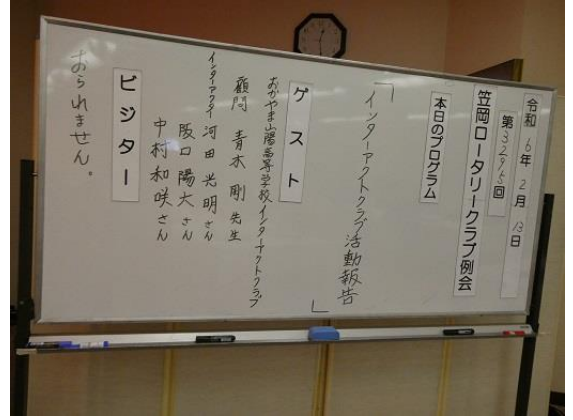 令和6年2月13日
第3295回
笠岡ロータリークラブ例会
本日のプログラム
「インターアクトクラブ活動報告」
ゲスト
おかやま山陽高等学校インターアクトクラブ
顧問 青木 剛 先生
インターアクター 河田 光明さん
阪口 陽大さん
中村和咲さん
ビジター
おられません。